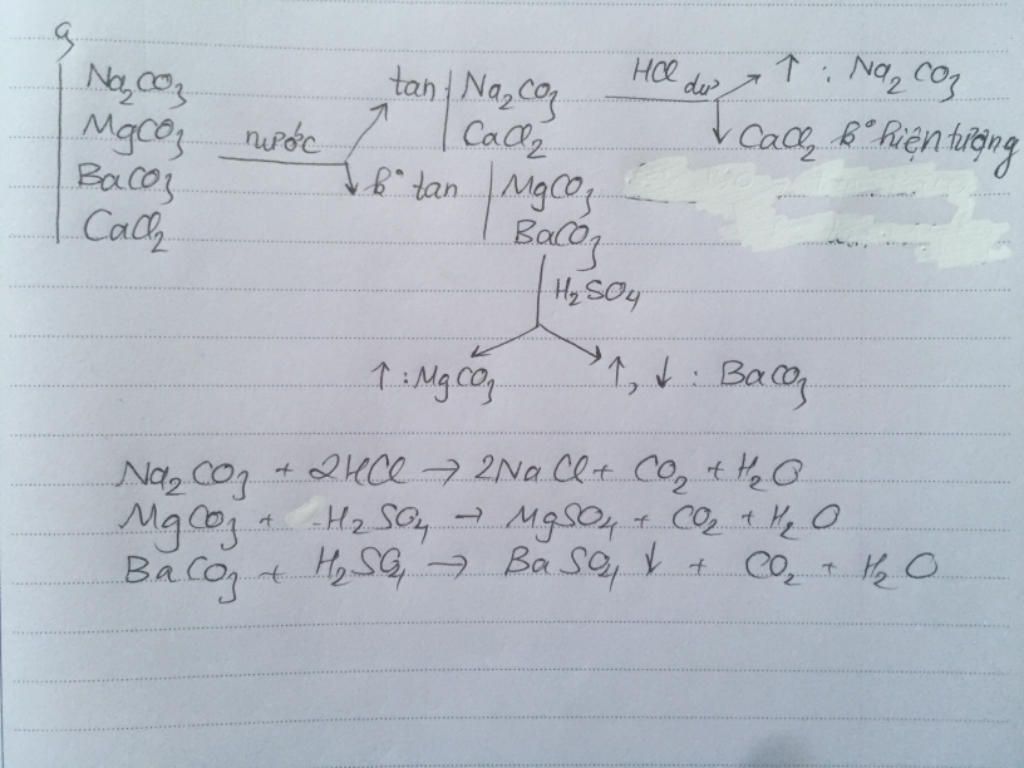 Na2CO3
MgCO3
BaCO3
CaCl2
nước
tan Na2CO3
CaCl2
HCl dư ↑ : Na2CO3
↓ CaCl2 k° hiện tượng
k° tan MgCO3
BaCO3
H2SO4
↑ : MgCO3
↑, ↓ : BaCO3
Na2CO3 + 2HCl → 2NaCl + CO2 + H2O
MgCO3 + H2SO4 → MgSO4 + CO2 + H2O
BaCO3 + H2SO4 → BaSO4 ↓ + CO2 + H2O